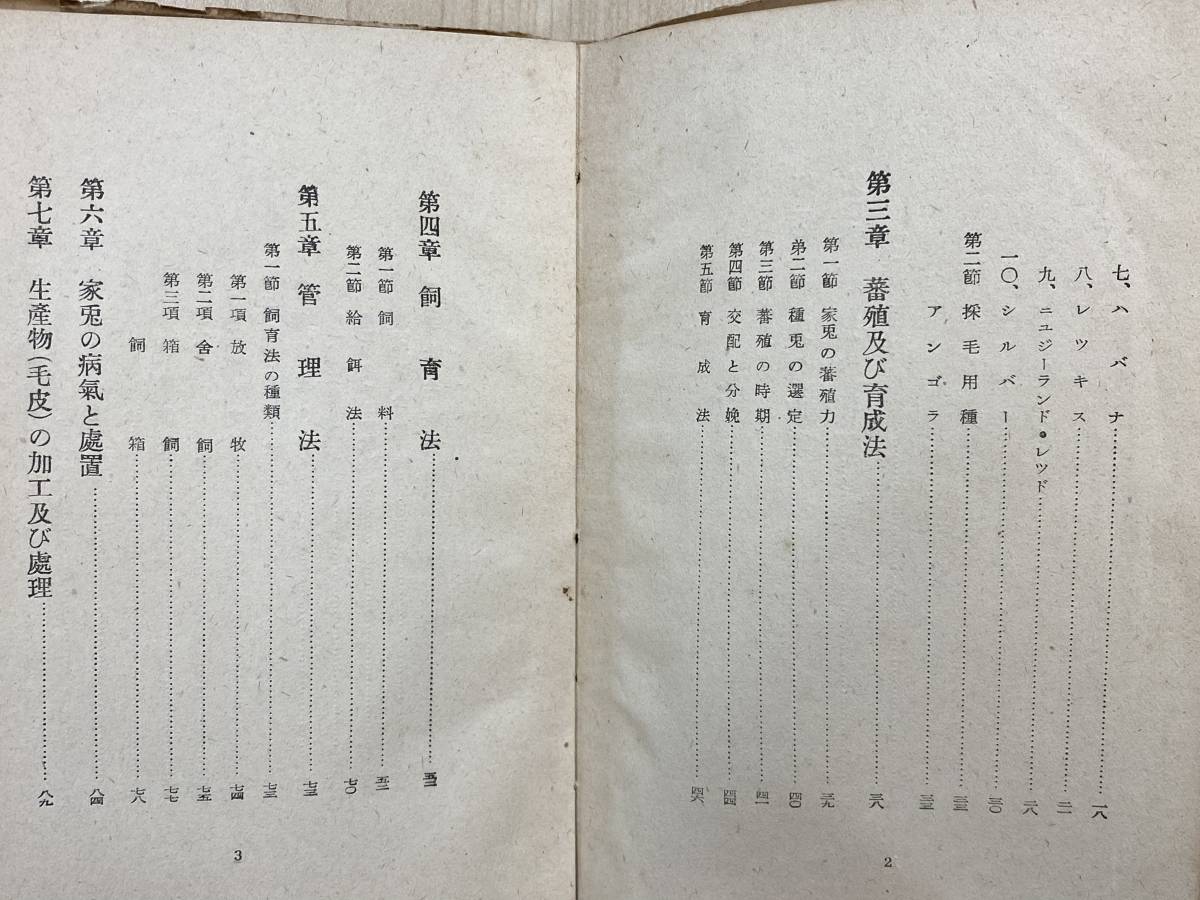 七、ハバナ……一八
八、レツキス……二一
九、ニュジーランド・レツド……二八
一〇、シルバー……三〇
第二節 採毛用種……三三
アンゴラ……三三
第三章 蕃殖及び育成法……三八
第一節 家兎の蕃殖力……三九
第二節 種兎の選定……四〇
第三節 蕃殖の時期……四一
第四節 交配と分娩……四四
第五節 育成法……四六
2
第四章 飼育法……五二
第一節 飼料……五二
第二節 給餌法……七〇
第五章 管理法……七三
第一節 飼育法の種類……七三
第一項 放牧……七四
第二項 舍飼……七五
第三項 箱飼……七七
飼箱……七八
第六章 家兎の病氣と處置……八四
第七章 生產物(毛皮)の加工及び處理……八九
3